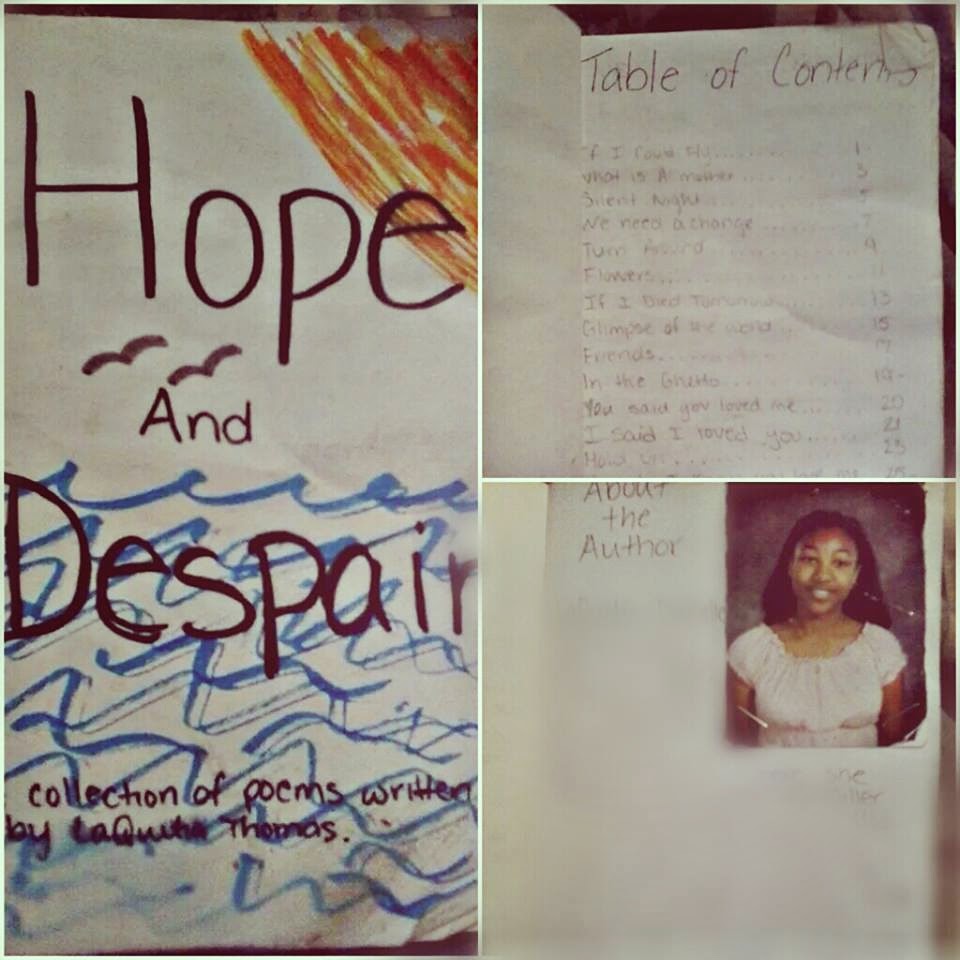 Hope
And
Despair
collection of poems written
by LaQuitta Thomas.
Table of Contents
If I Could Fly.......... 1
What is A mother.......... 3
Silent Night.......... 5
We need a change.......... 7
Turn Around.......... 9
Flowers.......... 11
If I Died Tomorrow.......... 13
Glimpse of the world.......... 15
Friends.......... 17
In the Ghetto.......... 19
You said you loved me...... 20
I said I loved you...... 21
23
me 25
About
the
Author
she